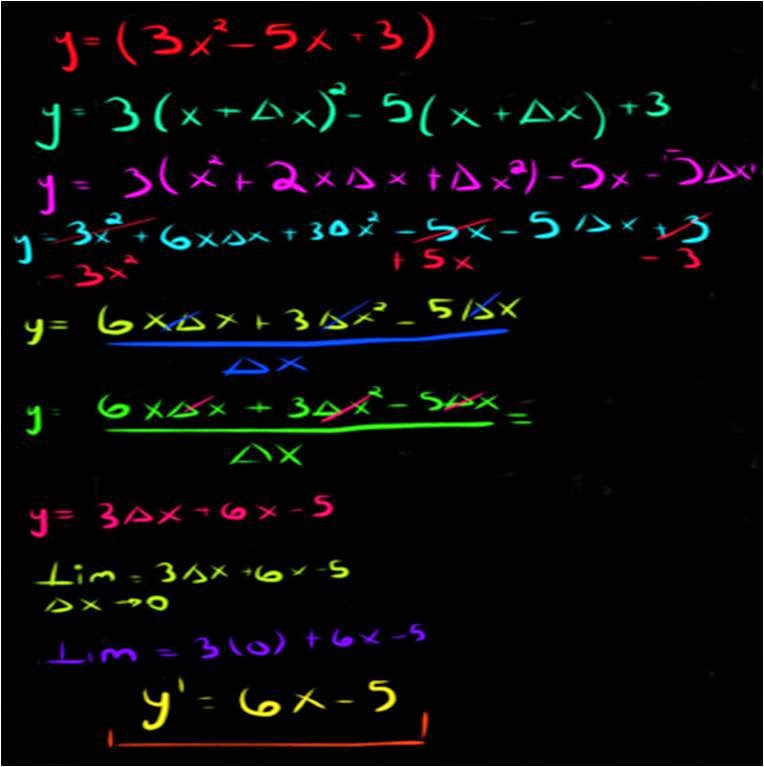 y = (3x² - 5x + 3)
y = 3(x + Δx)² - 5(x + Δx) + 3
y = 3(x² + 2xΔx + Δx²) - 5x - 5Δx
y = 3x² + 6xΔx + 3Δx² - 5x - 5Δx + 3
- 3x² + 5x - 3
y = 6xΔx + 3Δx² - 5Δx
Δx
y = 6xΔx + 3Δx² - 5Δx =
Δx
y = 3Δx + 6x - 5
Lim = 3Δx + 6x - 5
Δx → 0
Lim = 3(0) + 6x - 5
y' = 6x - 5